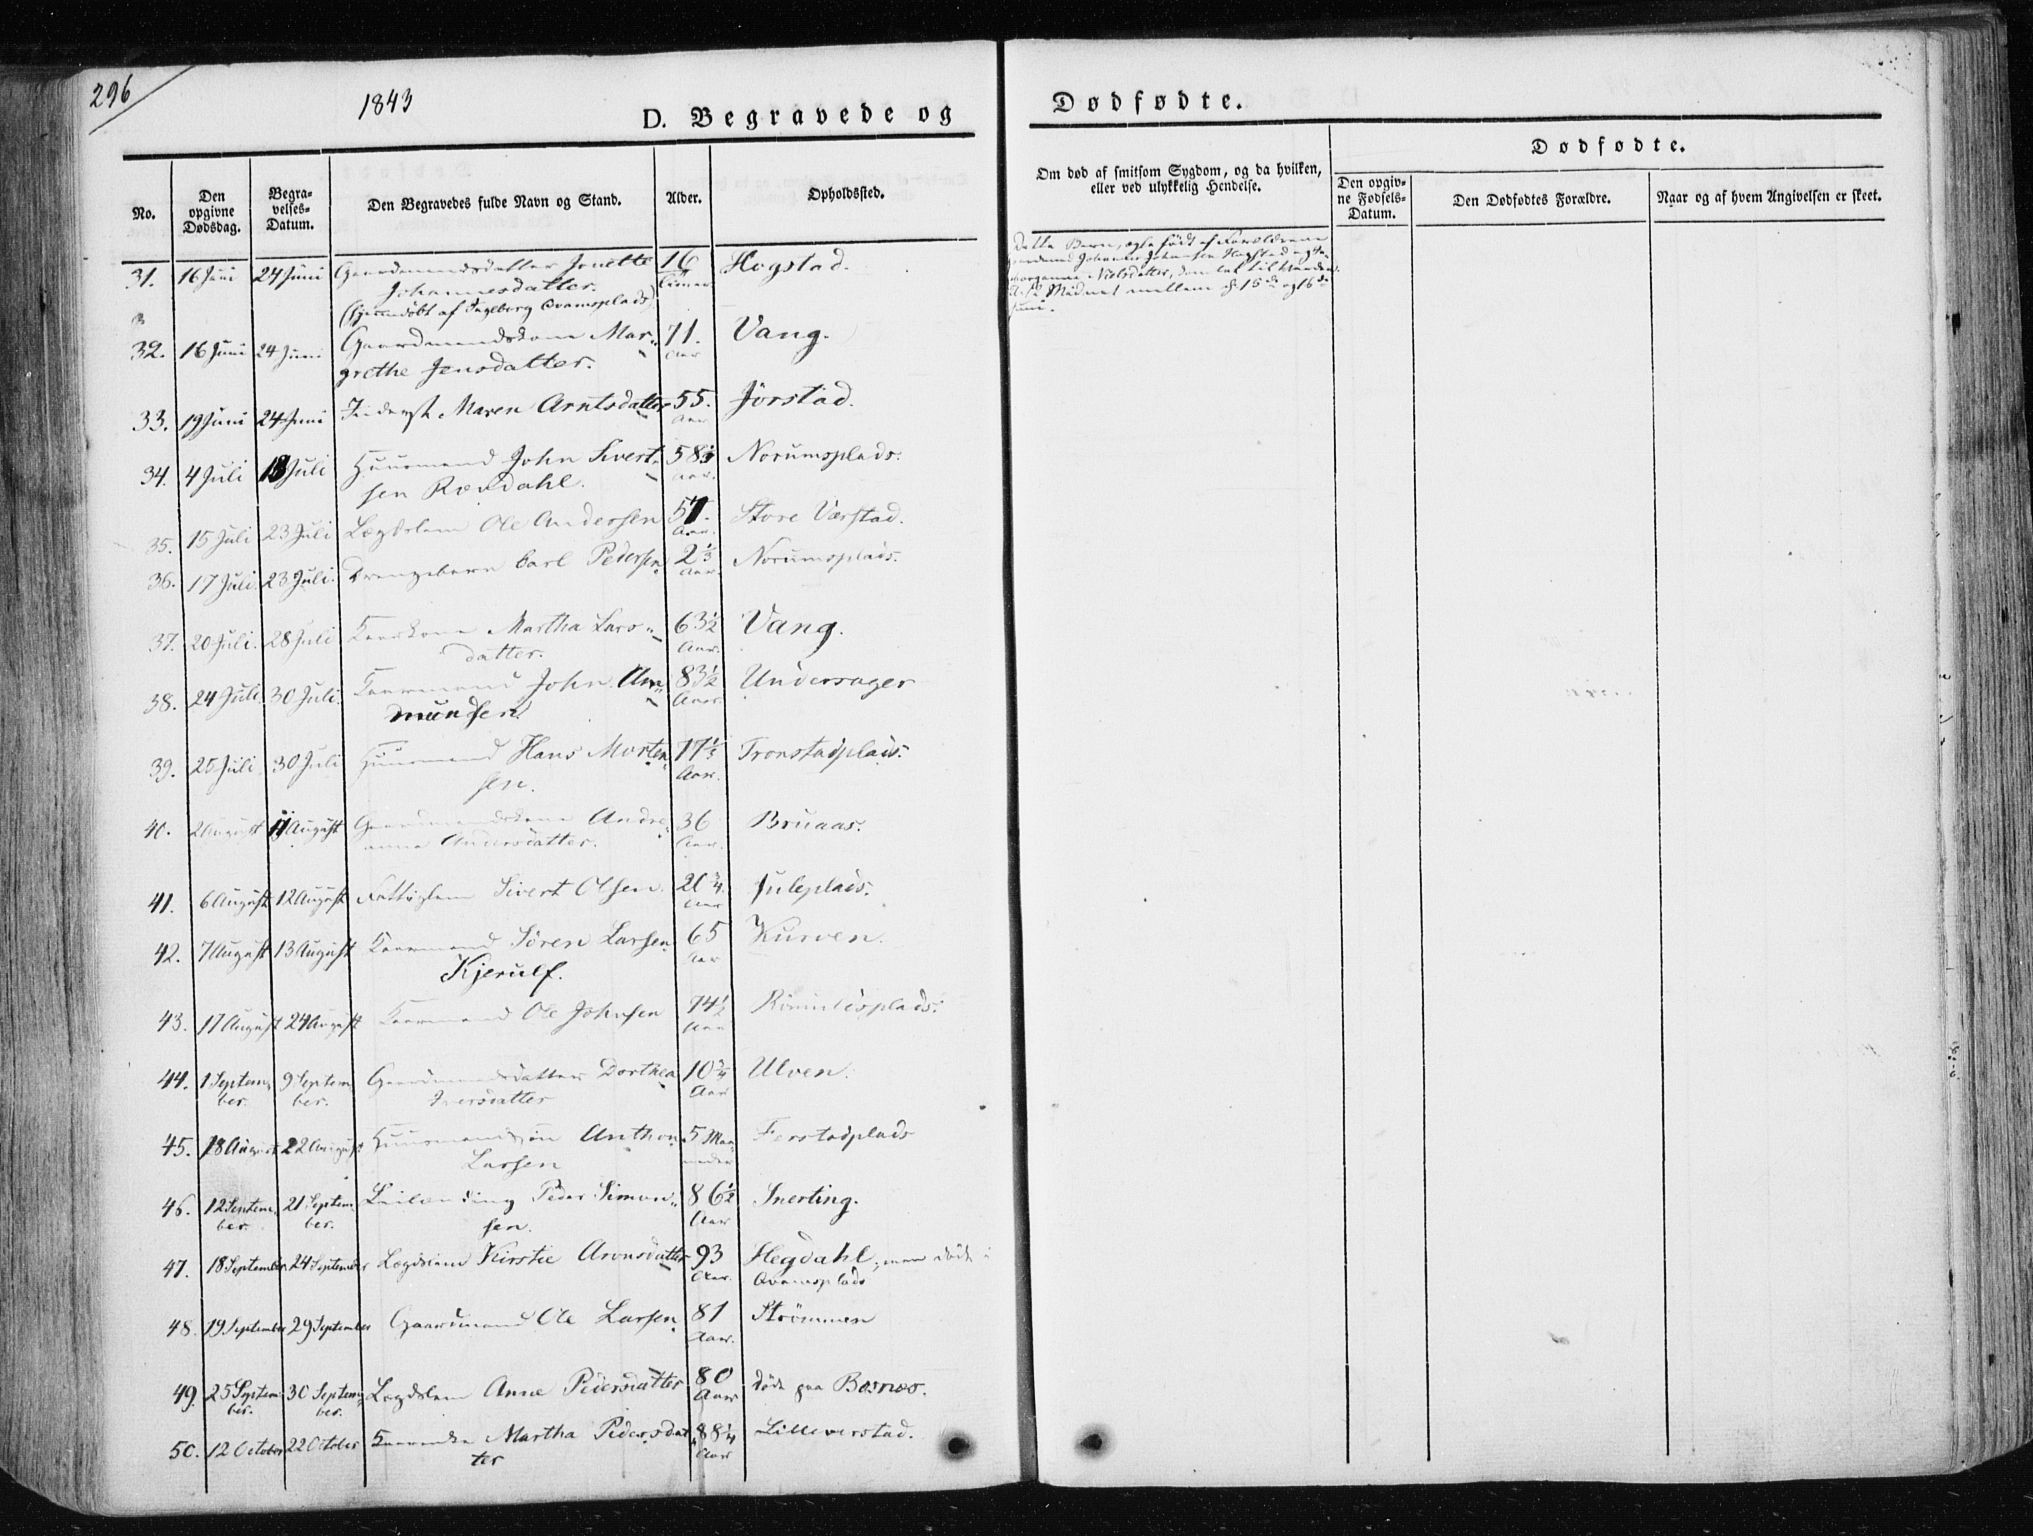 296
1843
D. Begravede og
Dødfødte.
No.
Den opgivne Dødsdag.
Begravelses-Datum.
Den Begravedes fulde Navn og Stand.
Alder.
Opholdssted.
Om død af smitsom Sygdom, og da hvilken,
eller ved ulykkelig Hendelse.
Dødfødte.
Den opgivne Fødsels-Datum.
Den Dødfødtes Forældre.
Naar og af hvem Angivelsen er skeet.
31. 16 Juni 24 Juni Gaardmandsdatter Jonette 16 Timer Hogstad.
Johannesdatter.
(hjemmedøbt af Ingeborg Qvamsplads)
32. 16 Juni 24 Juni Gaardmandskone Mar- 71. Aar Vang.
grethe Jensdatter.
33. 19 Juni 24 Juni Inderst Maren Arntsdatter 55. Aar Jørstad.
34. 4 Juli 13 Juli Huusmand John Sivert- 58 Aar. Norumsplads.
sen
35. 15 Juli 23 Juli Lægdslem Ole Andersen Aar. Store Værstad.
36. 17 Juli 23 Juli. Drengebarn Carl Pedersen 2⅓ Aar. Norumsplads.
37. 20 Juli. 28 Juli Kaarkone Martha Lars- 63½ Aar. Vang.
datter.
38. 24 Juli 30 Juli. Kaarmand John Am- 83½ Aar. Undersager
mundsen
39. 25 Juli 30 Juli Huusmand Hans Morten- Aar. Tronstadplads.
sen.
40. 2 August 11 August Gaardmandskone Andre- 36 Aar. Bruaas.
anna Andersdatter.
41. 6 August 12 August Fattiglem Sivert Olsen. 20¾ Aar Juleplads.
42. 7 August 13 August Kaarmand Sören Larsen 65 Aar Kurven.
Kjerulf.
43. 17 August 24 August Kaarmand Ole Johnsen 74½ Aar
44. 1 September. 9 September. Gaardmandsdatter Dorthea 10¾ Aar Ulven.
Iversdatter
45. 18 August 22 August Huusmandssön Anthon 5 Maaneder Ferstadplads
Larsen
46. 12 September. 21 September. Leilænding Peder Simon- 86½ Aar Snerting.
sen.
47. 18 September 24 September Lægdslem Kirstie Aronsdatter 93 Aar. Hegdahl, men døde i
Qvamsplads
48. 19 September 29 September Gaardmand Ole Larsen 81 Aar. Strömmen
49. 25 September. 30 September. Lægdslem Anne Pedersdatter 80 Aar døde paa Bosnæs.
50. 12 October 22 October Martha Pedersdat- 88¼ Aar Lilleverstad.
ter
Dette Barn, ægte født af Forældrene
Gaardmand Johannes Johansen Hogstad og
Nielsdatter, kom til Verden
Midnat mellem d. 15de og 16de
Juni.